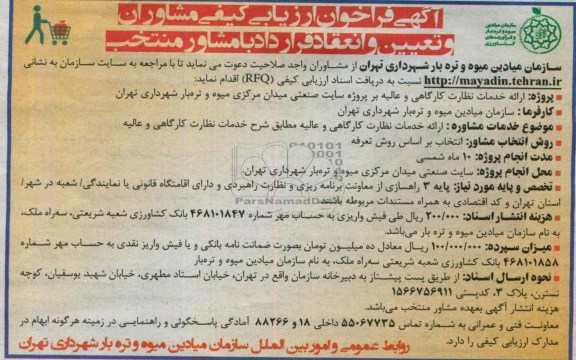 آگهی فراخوان ارزیابی کیفی مشاوران
و تعیین و انعقاد قرارداد با مشاور منتخب
سازمان میادین
میوه و تره بار
و فرآورده‌های
کشاورزی
سازمان میادین میوه و تره بار شهرداری تهران از مشاوران واجد صلاحیت دعوت می نماید تا با مراجعه به سایت سازمان به نشانی
http://mayadin.tehran.ir نسبت به دریافت اسناد ارزیابی کیفی (RFQ) اقدام نماید:
پروژه: ارائه خدمات نظارت کارگاهی و عالیه بر پروژه سایت صنعتی میدان مرکزی میوه و تره‌بار شهرداری تهران
کارفرما: سازمان میادین میوه و تره‌بار شهرداری تهران
موضوع خدمات مشاوره: ارائه خدمات نظارت کارگاهی و عالیه مطابق شرح خدمات نظارت کارگاهی و عالیه
روش انتخاب مشاور: انتخاب بر اساس روش تعرفه
مدت انجام پروژه: ۱۰ ماه شمسی
محل انجام پروژه: سایت صنعتی میدان مرکزی میوه و تره‌بار شهرداری تهران
تخصص و پایه مورد نیاز: پایه ۳ راهسازی از معاونت برنامه ریزی و نظارت راهبردی و دارای اقامتگاه قانونی یا نمایندگی/ شعبه در شهر/
استان تهران و کد اقتصادی به همراه مستندات مربوطه باشند
هزینه انتشار اسناد: ۲۰۰/۰۰۰ ریال طی فیش واریزی به حساب مهر شماره ۴۶۸۱۰۱۸۴۷ بانک کشاورزی شعبه شریعتی، سه‌راه ملک،
به نام سازمان میادین میوه و تره بار می‌باشد.
میزان سپرده: ۱۰۰/۰۰۰/۰۰۰ ریال معادل ده میلیون تومان بصورت ضمانت نامه بانکی و یا فیش واریز نقدی به حساب مهر شماره
۴۶۸۱۰۱۸۵۸ بانک کشاورزی شعبه شریعتی سه‌راه ملک، به نام سازمان میادین میوه و تره‌بار
نحوه ارسال اسناد: از طریق پست پیشتاز به دبیرخانه سازمان واقع در تهران، خیابان استاد مطهری، خیابان شهید یوسفیان، کوچه
نسترن، پلاک ۳، کدپستی ۱۵۶۶۷۵۶۹۱۱
هزینه انتشار آگهی بعهده مشاور منتخب می‌باشد.
معاونت فنی و عمرانی به شماره تماس ۵۵۰۶۷۷۳۵ داخلی ۱۸ و ۸۸۲۶۶ آمادگی پاسخگوئی و راهنمایی در زمینه هرگونه ابهام در
مدارک ارزیابی کیفی را دارد.
روابط عمومی و امور بین الملل سازمان میادین میوه و تره بار شهرداری تهران